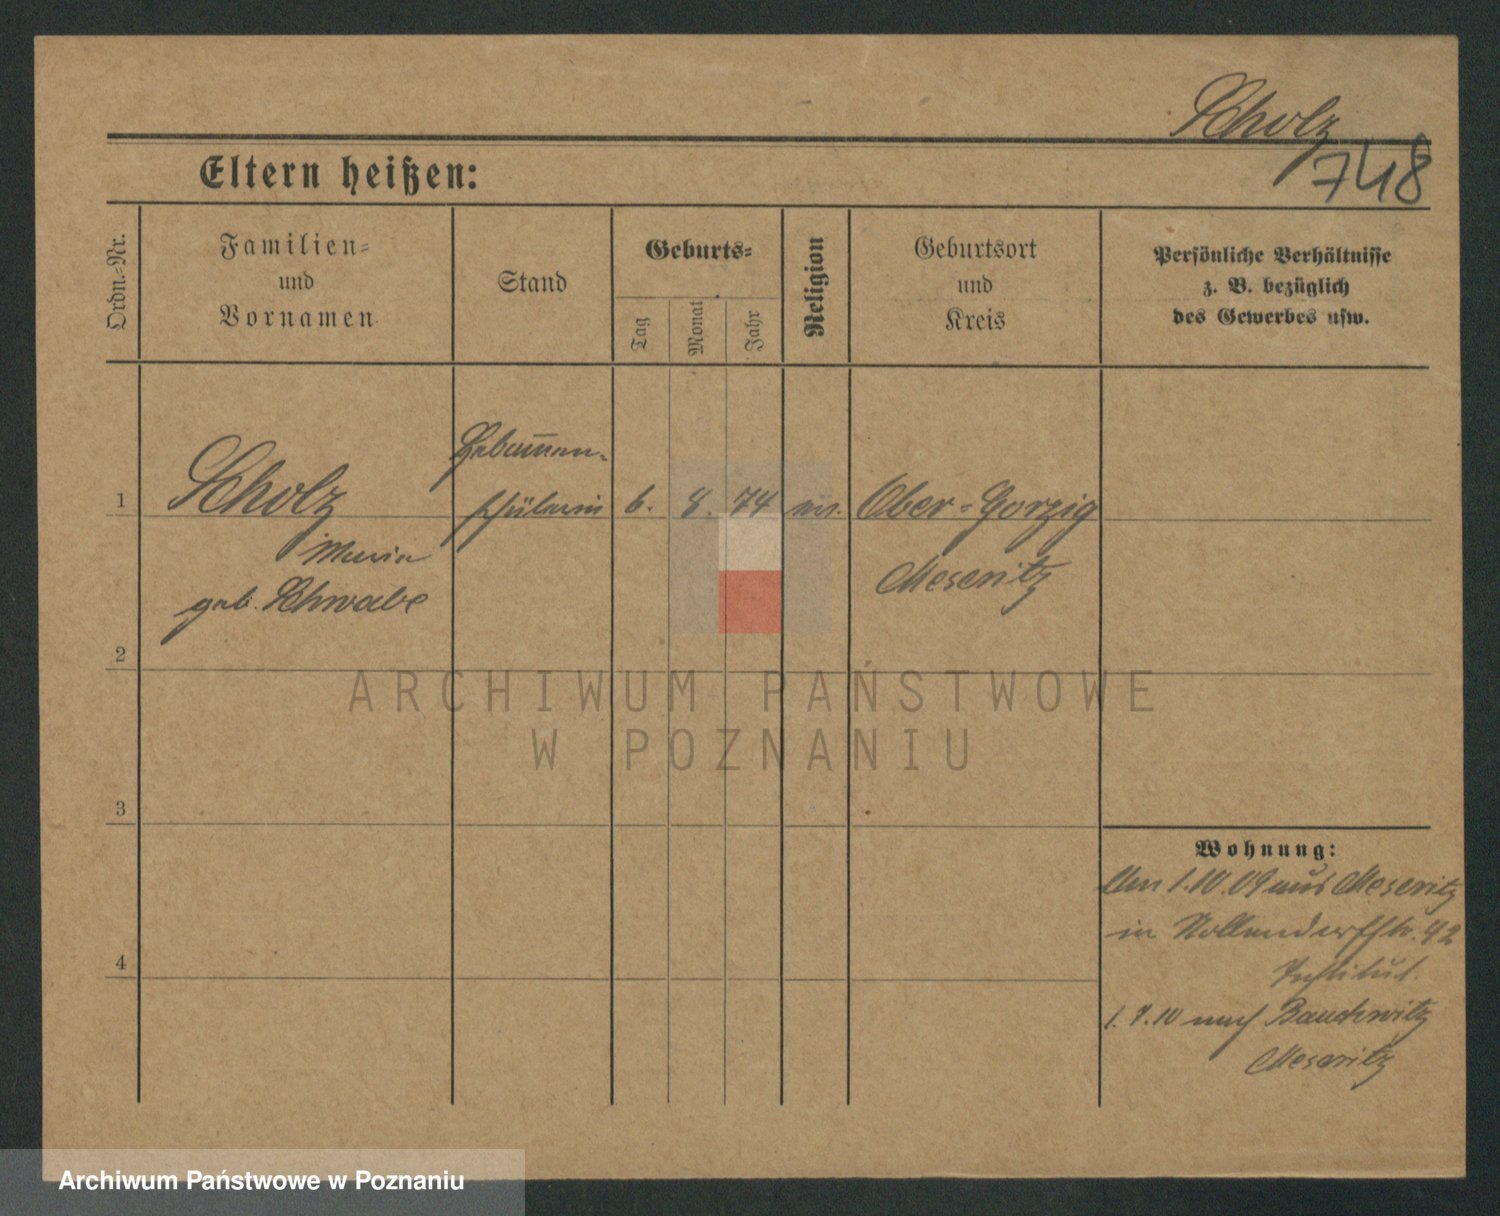 Scholz
748
Eltern heißen:
Ordn.-Nr.
Familien-
und
Vornamen
Stand
Geburts-
Tag
Monat
Jahr
Religion
Geburtsort
und
Kreis
Persönliche Verhältnisse
z. B. bezüglich
des Gewerbes usw.
1
Scholz
Maria
geb. Schwabe
Hebammen-
schülerin
6.
8.
74
ev.
Ober-Gorzig
Meseritz
2
3
4
Wohnung:
Am 1.10.09 aus Meseritz
in Nollendorfstr. 42
Institut.
1.7.10 nach Bauchwitz
Meseritz
ARCHIWUM PAŃSTWOWE
W POZNANIU
Archiwum Państwowe w Poznaniu